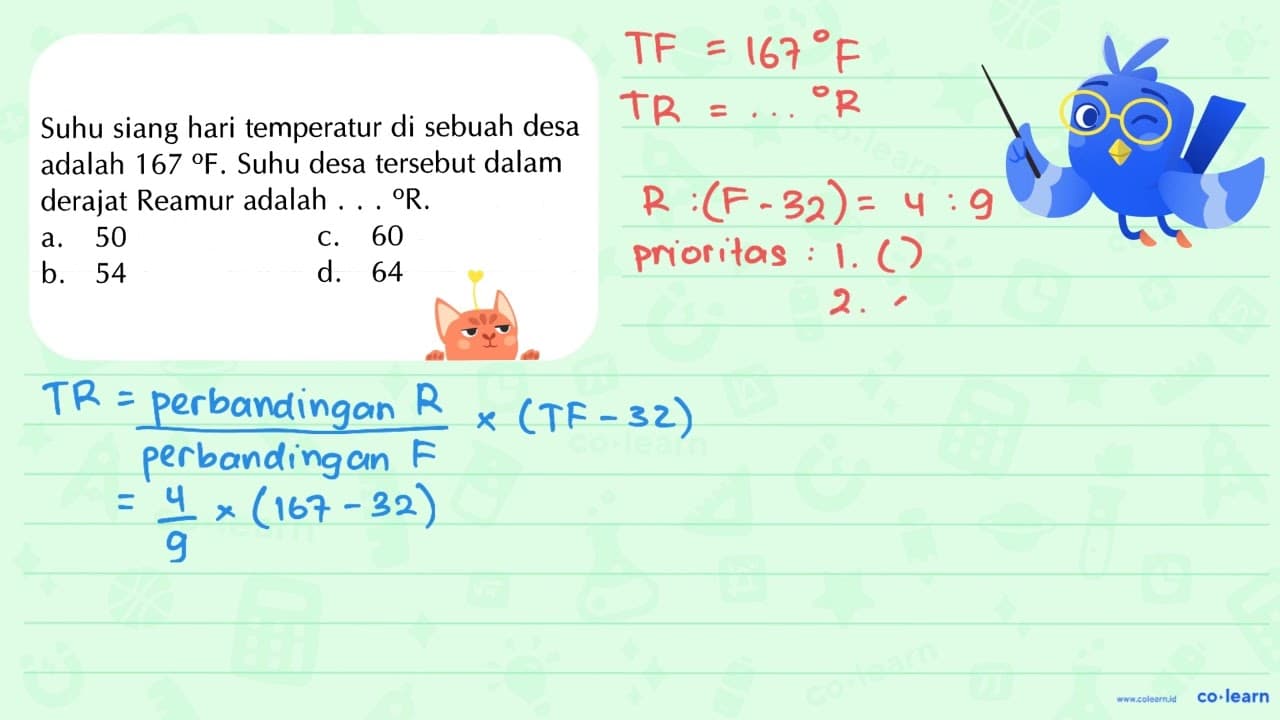 Suhu siang hari temperatur di sebuah desa
adalah 167 °F. Suhu desa tersebut dalam
derajat Reamur adalah . . . °R.
a. 50 c. 60
b. 54 d. 64
TF = 167°F
TR = ... °R
R : (F - 32) = 4 : 9
prioritas : 1. ( )
2.
TR = perbandingan R / perbandingan F × (TF - 32)
= 4/9 × (167 - 32)
co·learn
co·learn
co·learn
www.colearn.id co·learn